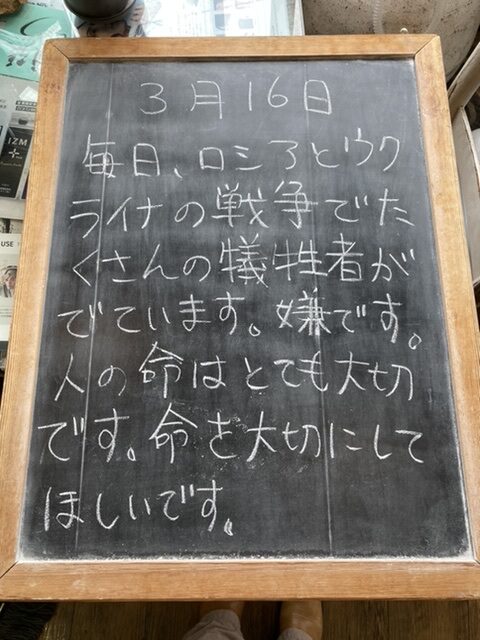 3月16日
毎日、ロシアとウク
ライナの戦争でた
くさんの犠牲者が
でています。嫌です。
人の命はとても大切
です。命を大切にして
ほしいです。
IZM
USE